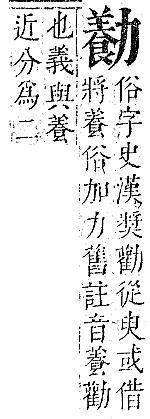 俗字史漢奬勸從臾或借
將養俗加力舊註音養勸
也義與養
近分爲二